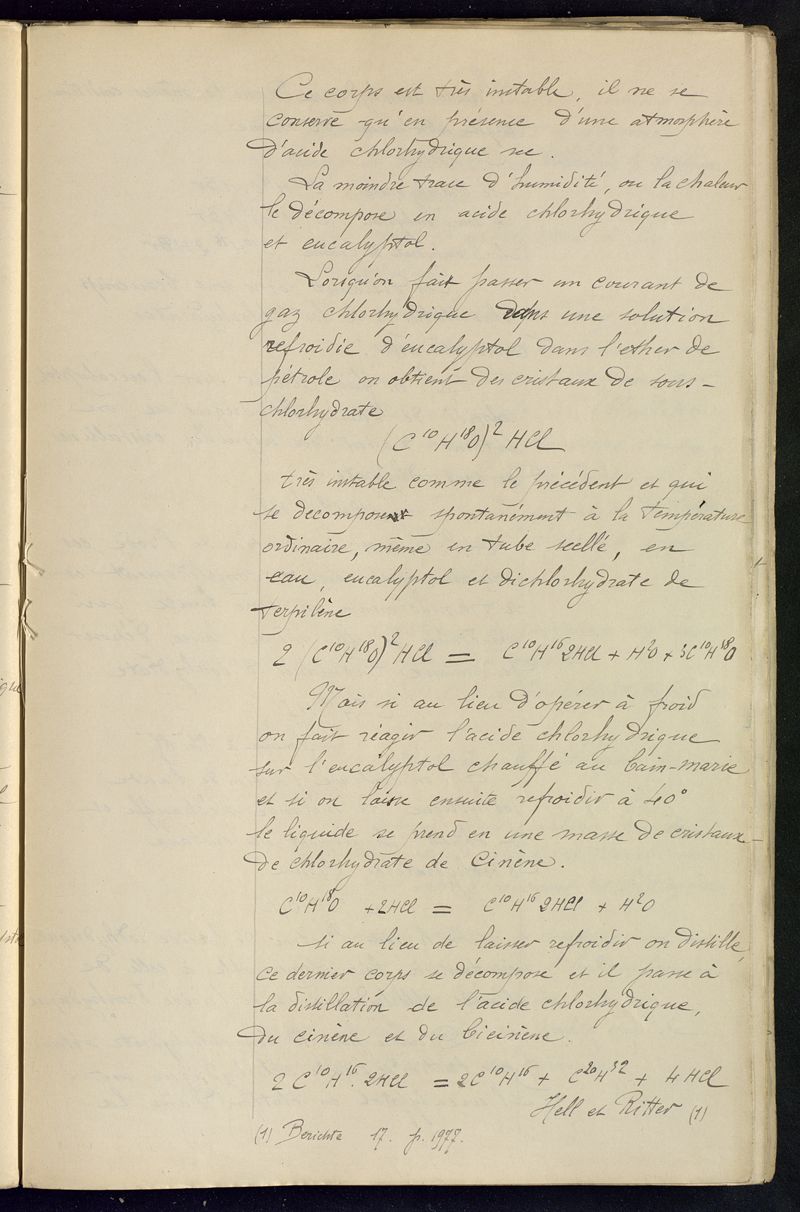 Ce corps est très instable, il ne se
conserve qu'en présence d'une atmosphère
d'acide chlorhydrique sec.
La moindre trace d'humidité, ou la chaleur
le décompose en acide chlorhydrique
et eucalyptol.
Lorsqu'on fait passer un courant de
gaz chlorhydrique dans une solution
refroidie d'eucalyptol dans l'ether de
pétrole on obtient des cristaux de sous-
chlorhydrate
(C¹⁰H¹⁸O)² HCl
très instable comme le précédent et qui
se decompose spontanément à la température
ordinaire, même en tube scellé, en
eau, eucalyptol et dichlorhydrate de
terpilène
2 (C¹⁰H¹⁸O)² HCl = C¹⁰H¹⁶ 2HCl + H²O + 3C¹⁰H¹⁸O
Mais si au lieu d'opérer à froid
on fait réagir l'acide chlorhydrique
sur l'eucalyptol chauffé au bain-marie
et si on laisse ensuite refroidir à 40°
le liquide se prend en une masse de cristaux
de chlorhydrate de Cinène.
C¹⁰H¹⁸O + 2HCl = C¹⁰H¹⁶ 2HCl + H²O
si au lieu de laisser refroidir on distille,
ce dernier corps se décompose et il passe à
la distillation de l'acide chlorhydrique,
du cinène et du bicinène.
2 C¹⁰H¹⁶. 2HCl = 2C¹⁰H¹⁶ + C²⁰H³² + 4HCl
Hell et Ritter (1)
(1) Berichte 17. p. 1977.